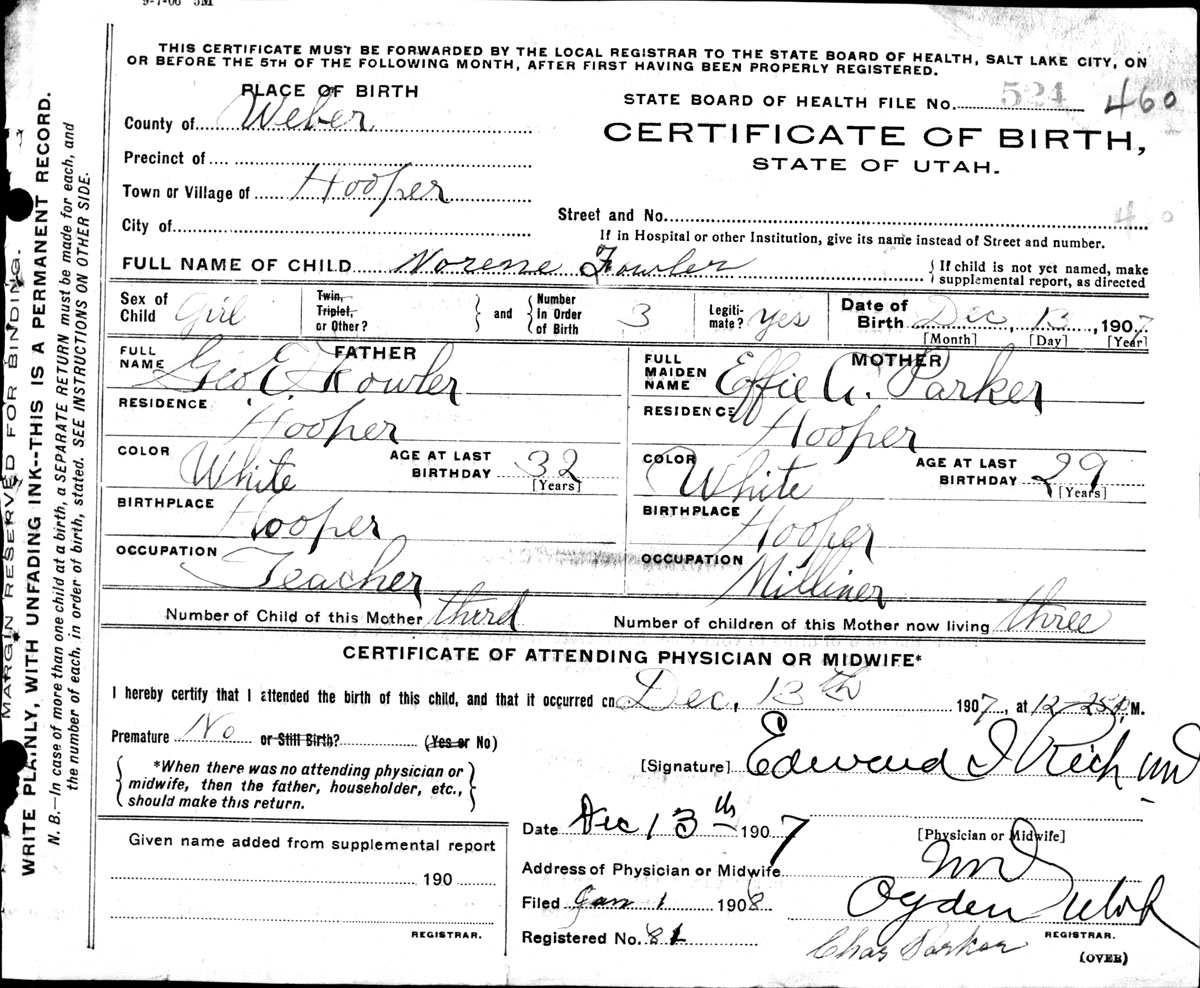 9-7-06 5M
THIS CERTIFICATE MUST BE FORWARDED BY THE LOCAL REGISTRAR TO THE STATE BOARD OF HEALTH, SALT LAKE CITY, ON
OR BEFORE THE 5TH OF THE FOLLOWING MONTH, AFTER FIRST HAVING BEEN PROPERLY REGISTERED.
PLACE OF BIRTH
STATE BOARD OF HEALTH FILE No. 524 460
County of Weber
CERTIFICATE OF BIRTH,
STATE OF UTAH.
Precinct of
Town or Village of Hooper
Street and No.
City of
If in Hospital or other Institution, give its name instead of Street and number.
FULL NAME OF CHILD Norene Fowler
{ If child is not yet named, make
supplemental report, as directed
Sex of Child Girl
Twin, Triplet, or Other?
and
Number in Order of Birth 3
Legiti-mate? yes
Date of Birth Dec, 13, 1907
[Month] [Day] [Year]
FATHER
FULL NAME Geo E. Fowler
RESIDENCE Hooper
COLOR White
AGE AT LAST BIRTHDAY 32
[Years]
BIRTHPLACE Hooper
OCCUPATION Teacher
MOTHER
FULL MAIDEN NAME Effie G. Parker
RESIDENCE Hooper
COLOR White
AGE AT LAST BIRTHDAY 29
[Years]
BIRTHPLACE Hooper
OCCUPATION Milliner
Number of Child of this Mother third
Number of children of this Mother now living three
CERTIFICATE OF ATTENDING PHYSICIAN OR MIDWIFE*
I hereby certify that I attended the birth of this child, and that it occurred on Dec, 13th 1907, at 12-25 M.
Premature No or Still Birth? (Yes or No)
*When there was no attending physician or
midwife, then the father, householder, etc.,
should make this return.
[Signature] Edward I Rich MD
Date Dec 13th 1907
[Physician or Midwife]
MD
Address of Physician or Midwife
Ogden Utah
Filed Jan 1 1908
REGISTRAR.
Registered No. 81
Chas Parker
(OVER)
Given name added from supplemental report
190
REGISTRAR.
MARGIN RESERVED FOR BINDING.
WRITE PLAINLY, WITH UNFADING INK--THIS IS A PERMANENT RECORD.
N. B.—In case of more than one child at a birth, a SEPARATE RETURN must be made for each, and
the number of each, in order of birth, stated. SEE INSTRUCTIONS ON OTHER SIDE.